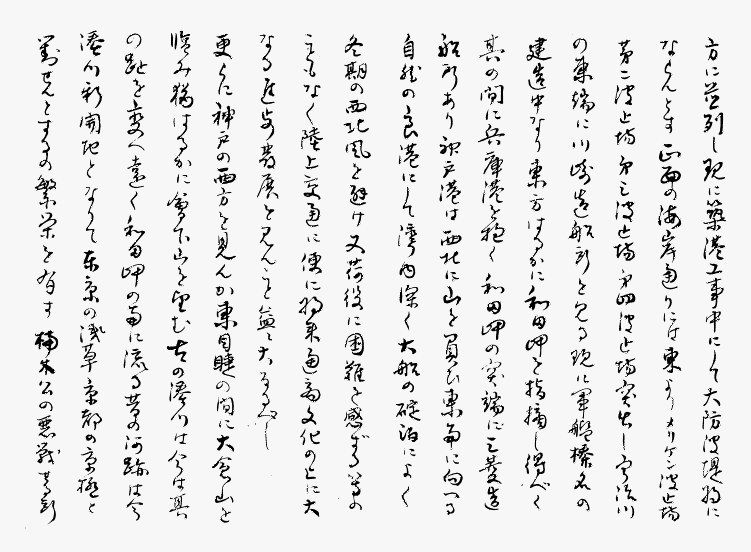 方に並列し現に築港工事中にして大防波堤將に
ならんとす正面の海岸通りには東よりメリケン波止場
第二波止場第三波止場第四波止場突出し宇治川
の東端に川崎造船所を見る現に軍艦榛名の
建造中なり東方はるかに和田岬を指摘し得べく
其の間に兵庫港を抱く和田岬の突端に三菱造
船所あり神戸港は西北に山を負ひ東南に向へる
自然の良港にして灣内深く大船の碇泊によく
冬期の西北風を避け又荷役に困難を感ずる等の
こともなく陸上交通に便に將来通商文化の上に大
なる進歩發展を見んこと益々大なるべし
更らに神戸の西方を見んか東目睫の間に大倉山を
臨み猶はるかに會下山を望む古の湊川は今は其
の趾を変へ遠く和田岬の南に流る昔の河跡は今
湊川新開地となりて東京の浅草京都の京極と
對せんとするの繁栄を有す楠木公の悪戦苦鬪